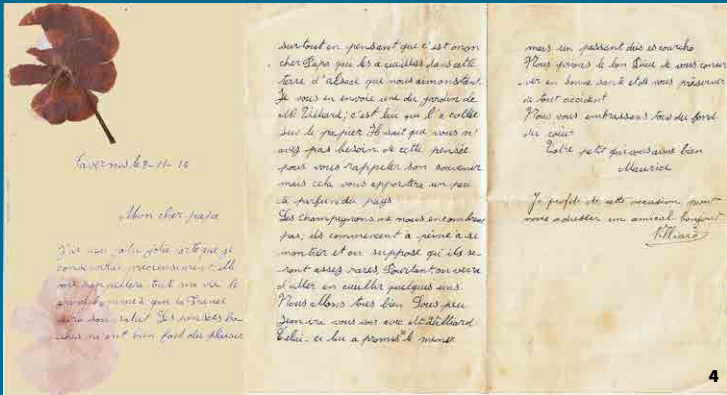 Favernis le 2-11-16
Mon cher papa
J'ai une jolie jolie carte que je
conserverai précieusement. Elle
me rappellera tout ma vie le
grand homme à que la France
doit son salut. Les pensées
m'ont bien fait du plaisir
surtout en pensant que c'est mon
cher Papa qui les a cueillies dans cette
terre d'alsace que nous aimons tant.
Je vous en envoie une du jardin de
Mr Villiard; c'est lui qui l'a collée
sur le papier. Il sait que vous n'
avez pas besoin de cette pensée
pour vous rappeler son souvenir
mais cela vous apportera un peu
le parfum du pays
Les champignons ne nous encombrent
pas; ils commencent à peine à se
montrer et on suppose qu'ils se-
ront assez rares. Pourtant on verra
d'aller en cueillir quelques uns.
Nous allons très bien. Sous peu
j'en irai vous voir avec Mr Villiard
Celui-ci lui a promis le mener
mais en passant dès
Nous prions le bon Dieu de vous conser
ver en bonne santé et de vous préserver
de tout accident
Nous vous embrassons tous du fond
du cœur
Votre petit qui vous aime bien
Maurice
Je profite de cette occasion pour
vous adresser un amical bonjour
Villiard
4